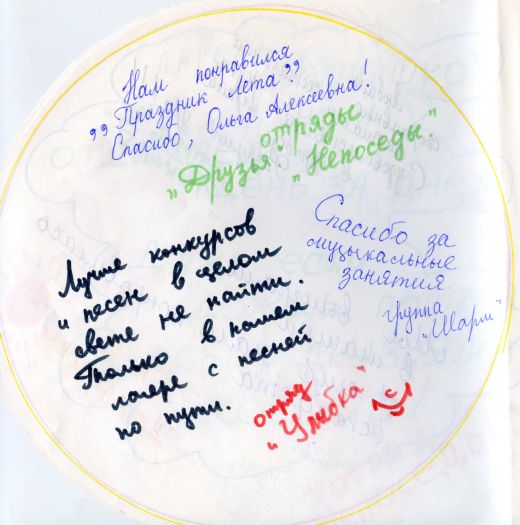 Нам понравился
„Праздник Лета”
Спасибо, Ольга Алексеевна!
отряды
„Друзья”. „Непоседы.”
Лучше конкурсов
и песен в целом
свете не найти.
Только в нашем
лагере с песней
по пути.
отряд
„Улыбка”
Спасибо за
музыкальные
занятия.
группа
„Шарм”